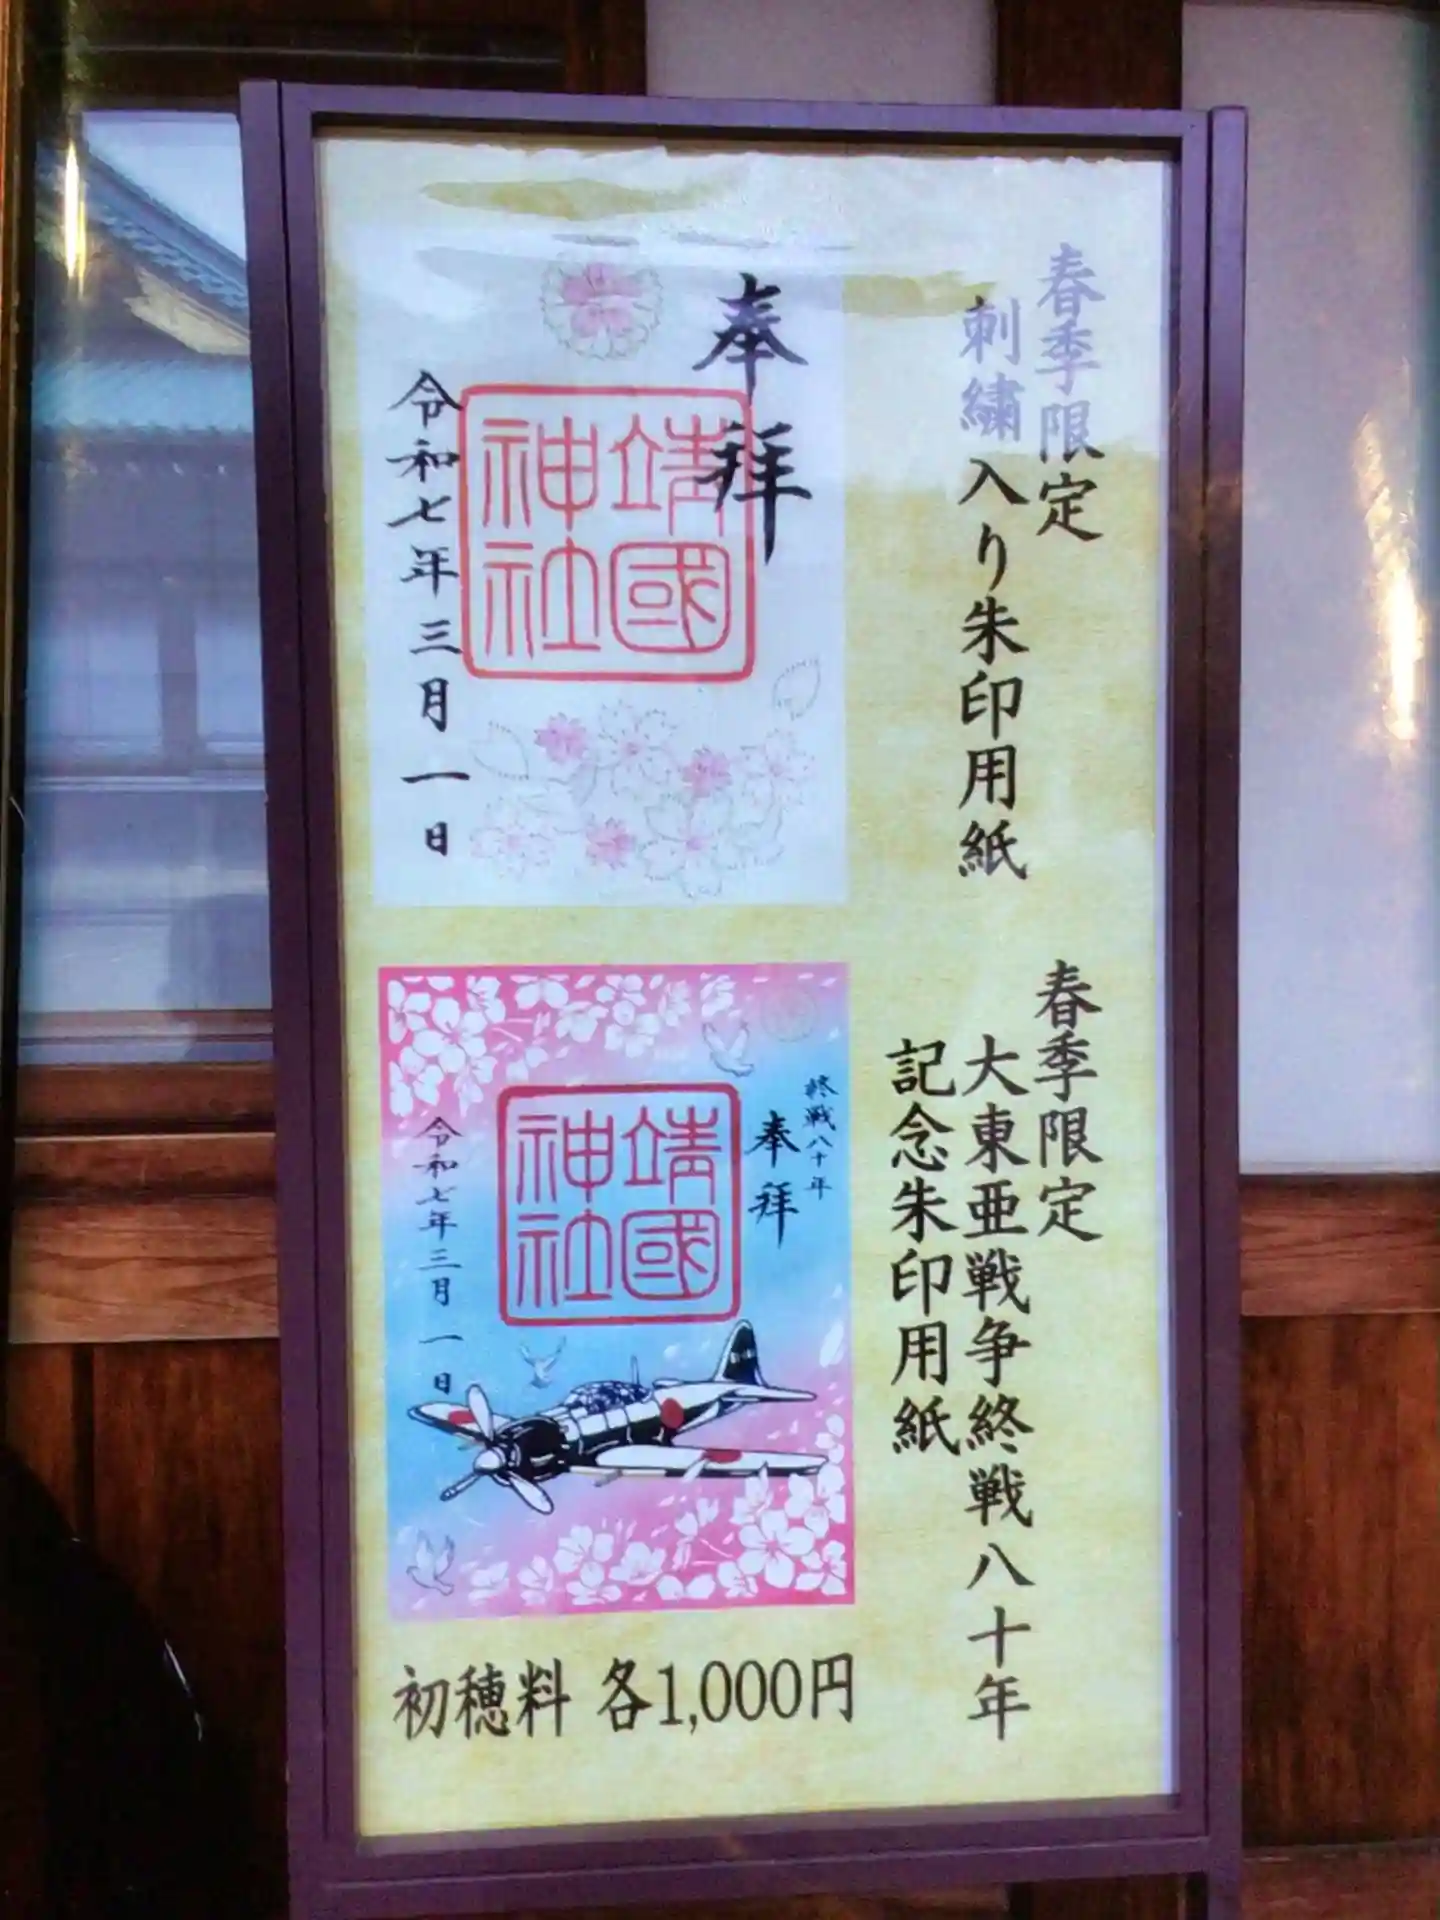 春季限定
刺繍入り朱印用紙
奉拝
靖國
神社
令和七年三月一日
春季限定
大東亜戦争終戦八十年
記念朱印用紙
終戦八十年
奉拝
靖國
神社
令和七年三月一日
初穂料 各1,000円